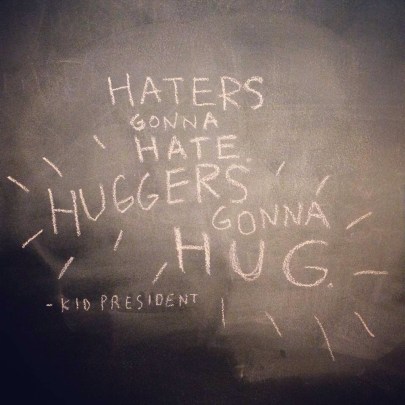 HATERS
GONNA
HATE.
HUGGERS
GONNA
HUG.
- KID PRESIDENT